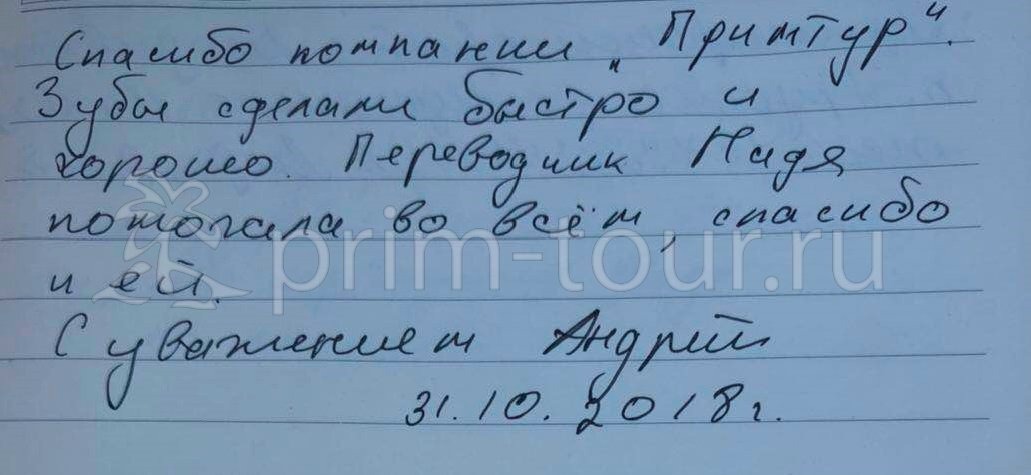 Спасибо компании „Примтур“.
Зубы сделали быстро и
хорошо. Переводчик Надя
помогала во всём, спасибо
и ей.
prim-tour.ru
С уважением Андрей
31.10.2018г.